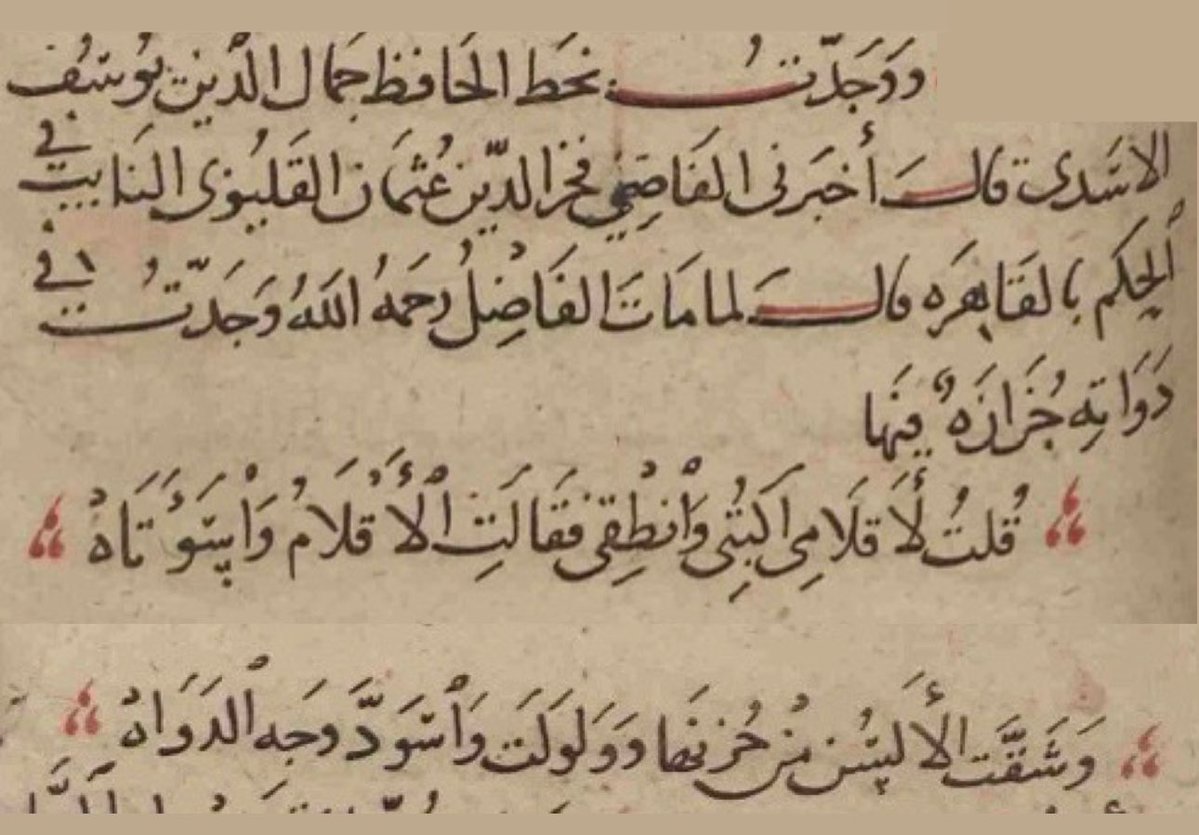 وَوَجَدْتُ بخط الحَافظ جَمال الدّين يوُسُف
الاسَدى قالَ أَخبَرنى القَاضِي فخر الدّين عُثمَان القَليُوبى النايب فى
الحكم بالقَاهِرَه قالَ لما مَاتَ الفَاضِلُ رحمَهُ اللهُ وَجَدْتُ فى
دَوَاتِهِ جُزَازَهً فيهَا
قُلتُ لأَقلَامِى اكتُبِى وَانْطِقِى فقَالَتِ الْأَقْلَامُ وَاسَوْءَتَاهْ
وَشَقَّت الأَلسُن مِنْ حُزنهَا وَوَلوَلَت وَاسْوَدَّ وَجه الدَوَاهْ